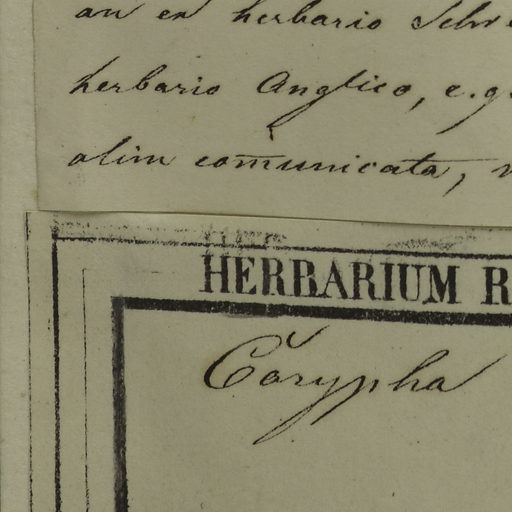 an en herbario
herbario Anglico, e.g.
olim comunicata,
HERBARIUM R
Corypha